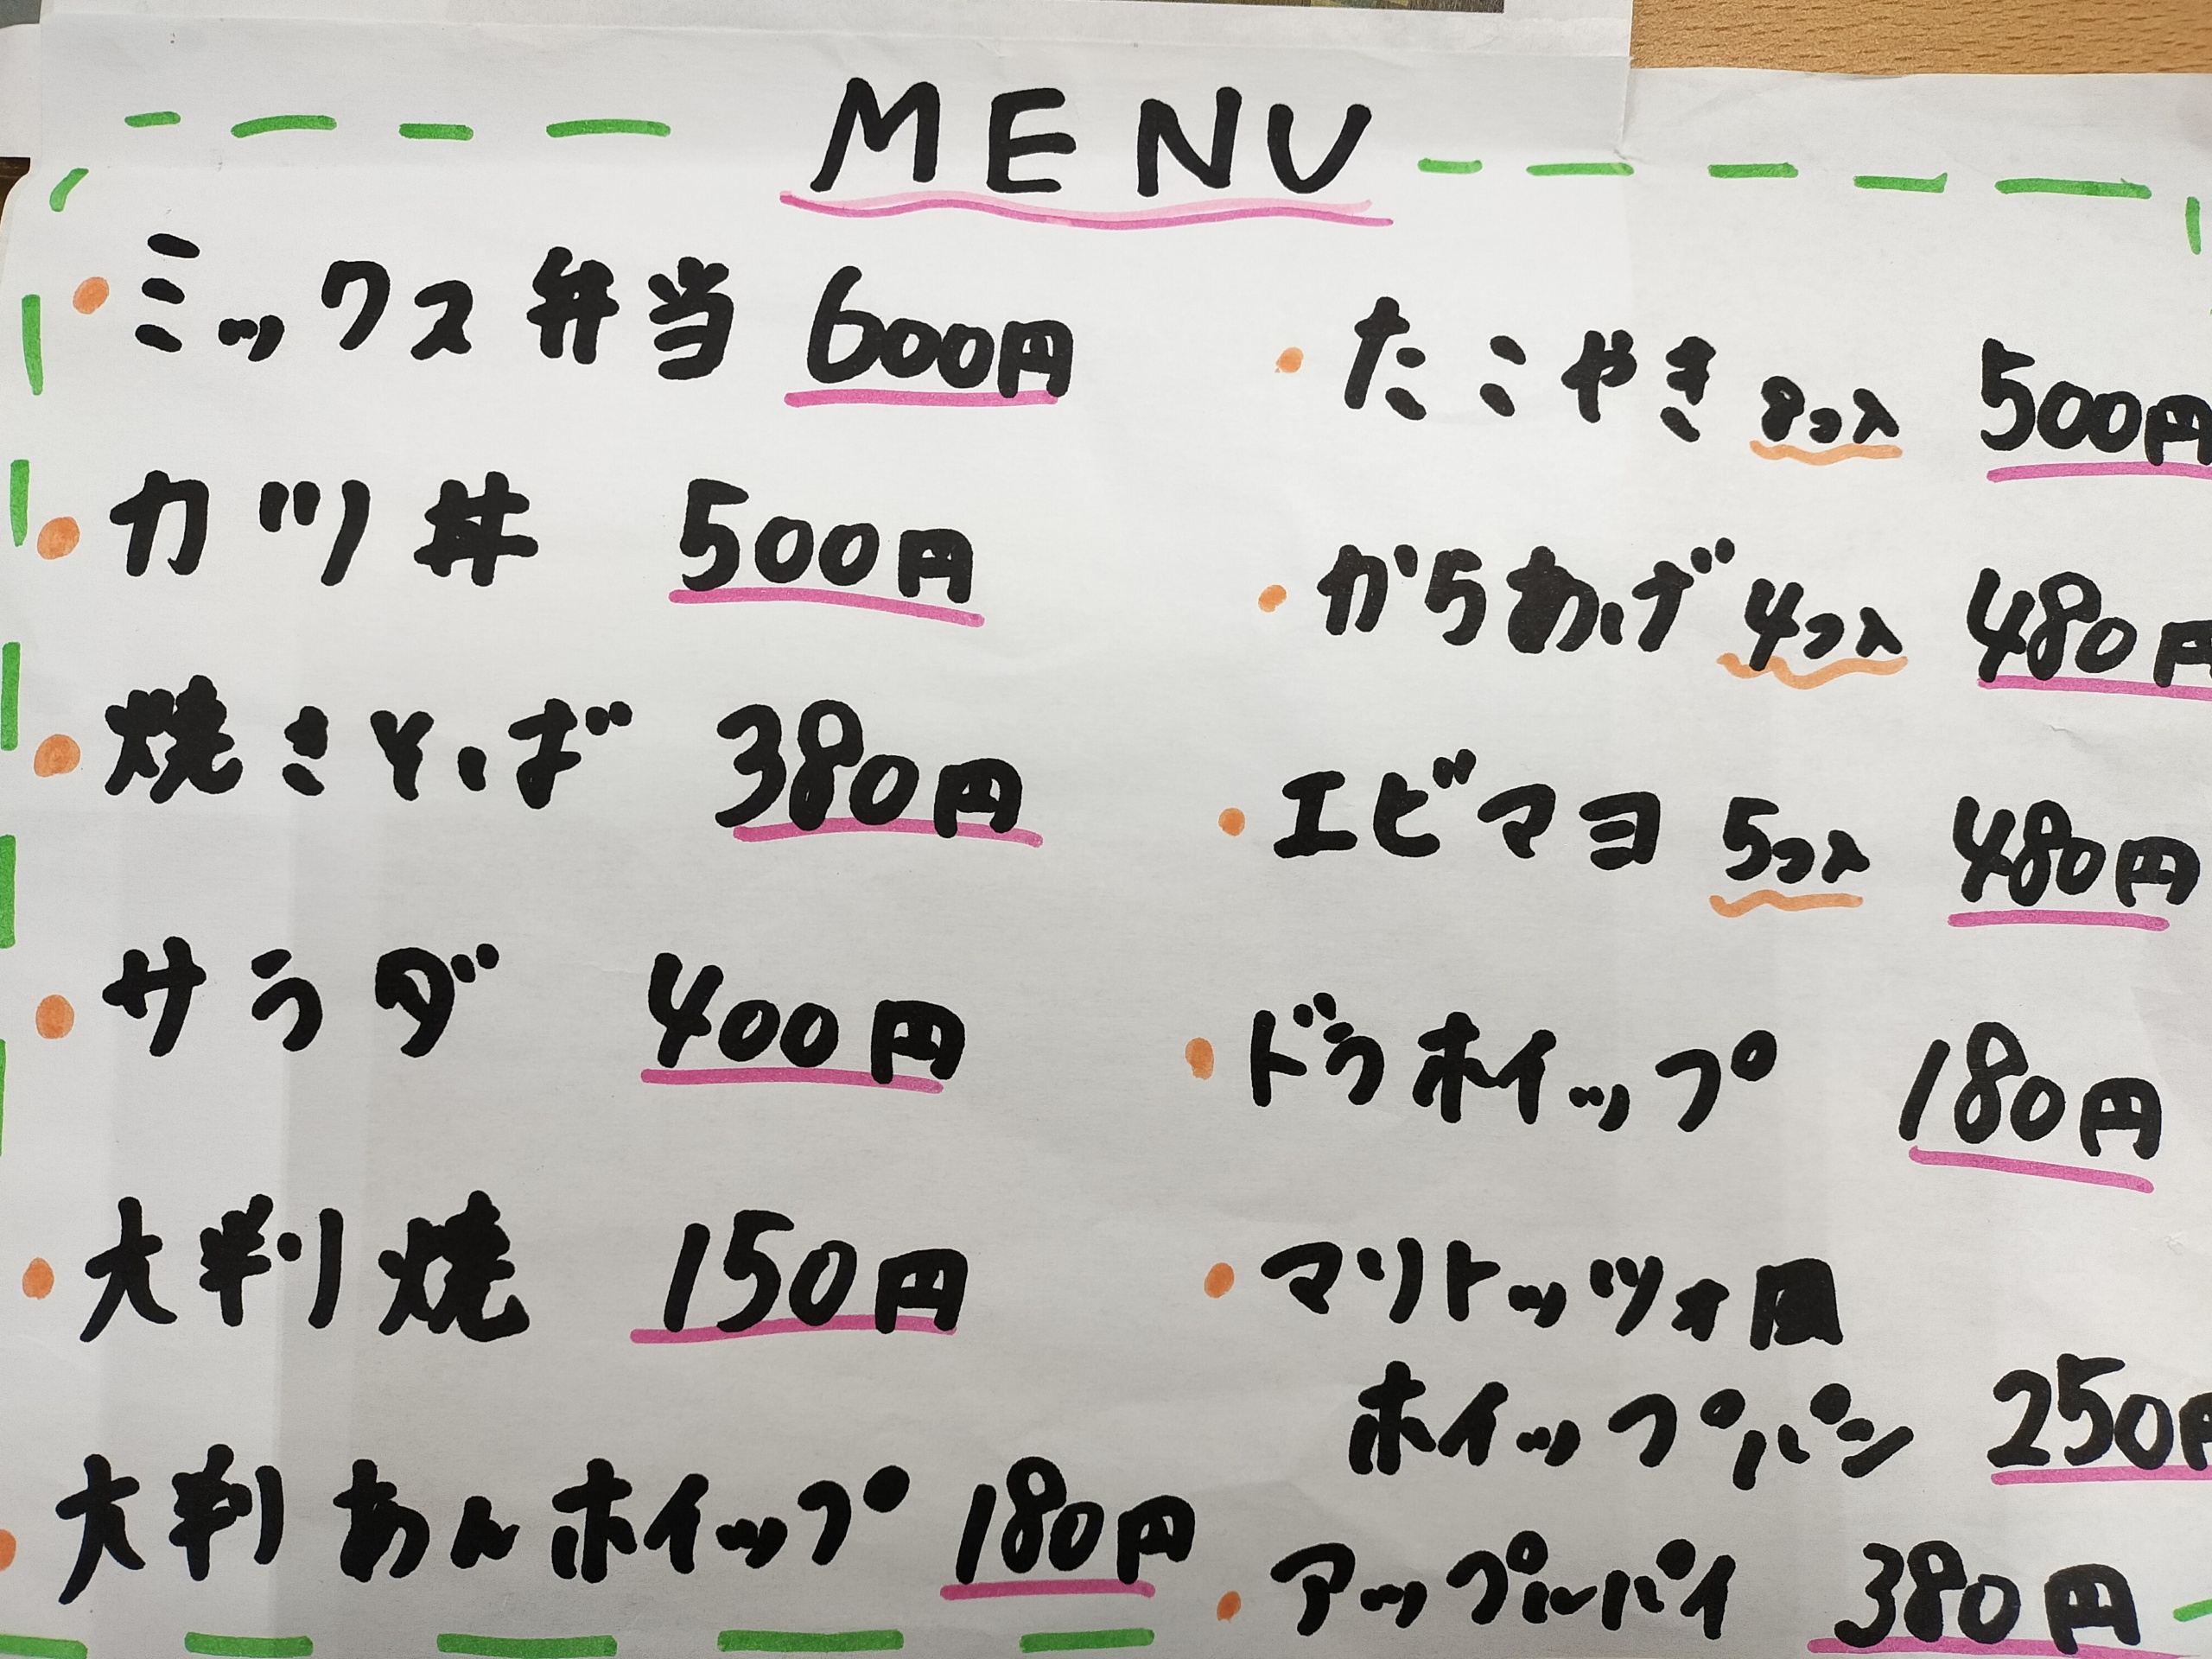 MENU
・ミックス弁当 600円
・カツ丼 500円
・焼きそば 380円
・サラダ 400円
・大判焼 150円
・大判あんホイップ 180円
・たこやき 8コ入 500円
・からあげ 4コ入 480円
・エビマヨ 5コ入 480円
・ドラホイップ 180円
・マリトッツォ風
ホイップパン 250円
・アップルパイ 380円